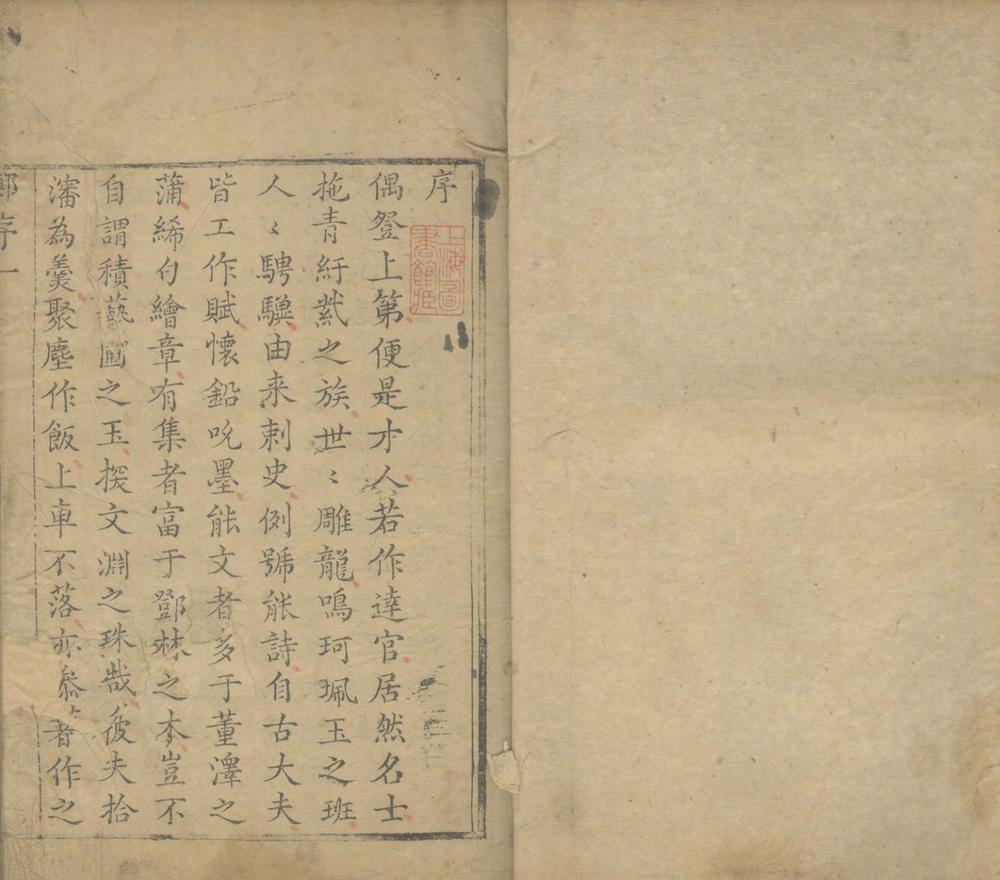 序
偶登上第便是才人若作達官居然名士
拖青紆紫之族世〻雕龍鳴珂珮玉之班
人〻騁驥由来剌史例號能詩自古大夫
皆工作賦懷鉛吮墨能文者多于董澤之
蒲絺句繪章有集者富于鄧林之木豈不
自謂積藝圃之玉探文淵之珠哉彼夫拾
瀋為羹聚塵作飯上車不落亦叅著作之
鄭序一
上海圖書館藏